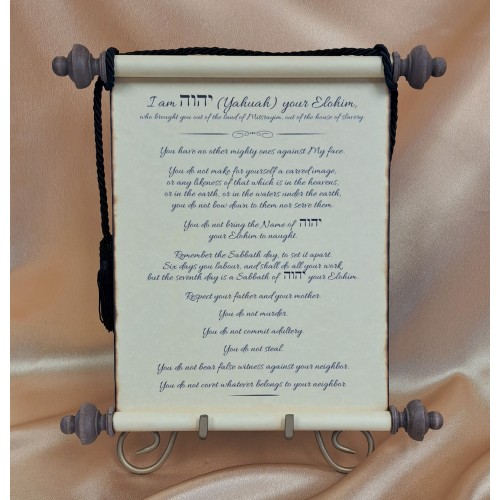 I am יהוה (Yahuah) your Elohim,
who brought you out of the land of Mitsrayim, out of the house of slavery.
You have no other mighty ones against My face.
You do not make for yourself a carved image,
or any likeness of that which is in the heavens,
or in the earth, or in the waters under the earth,
you do not bow down to them nor serve them.
You do not bring the Name of יהוה
your Elohim to naught.
Remember the Sabbath day, to set it apart.
Six days you labour, and shall do all your work,
but the seventh day is a Sabbath of יהוה your Elohim.
Respect your father and your mother.
You do not murder.
You do not commit adultery.
You do not steal.
You do not bear false witness against your neighbor.
You do not covet whatever belongs to your neighbor.